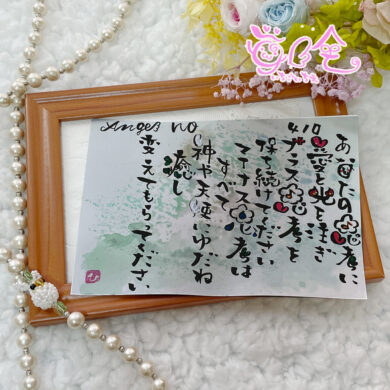 Angel no
410
あなたの思考に
愛と光を注ぎ
プラス思考を
保ち続けてください
マイナス思考は
すべて
神や天使にゆだね
癒し
変えてもらってください